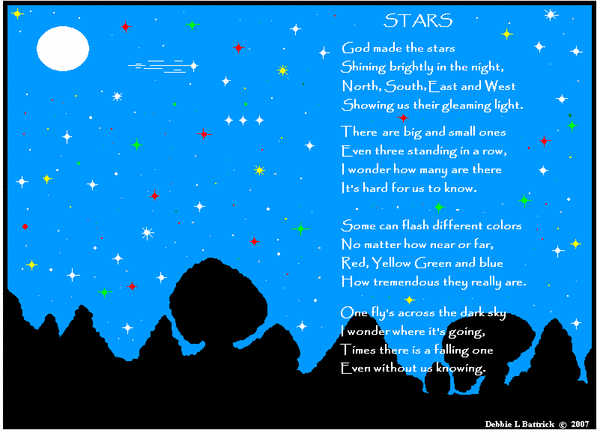 STARS
God made the stars
Shining brightly in the night,
North, South, East and West
Showing us their gleaming light.
There are big and small ones
Even three standing in a row,
I wonder how many are there
It's hard for us to know.
Some can flash different colors
No matter how near or far,
Red, Yellow Green and blue
How tremendous they really are.
One fly's across the dark sky
I wonder where it's going,
Times there is a falling one
Even without us knowing.
Debbie L Battrick © 2007